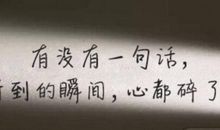 有没有一句话，
到的瞬间，心都碎了